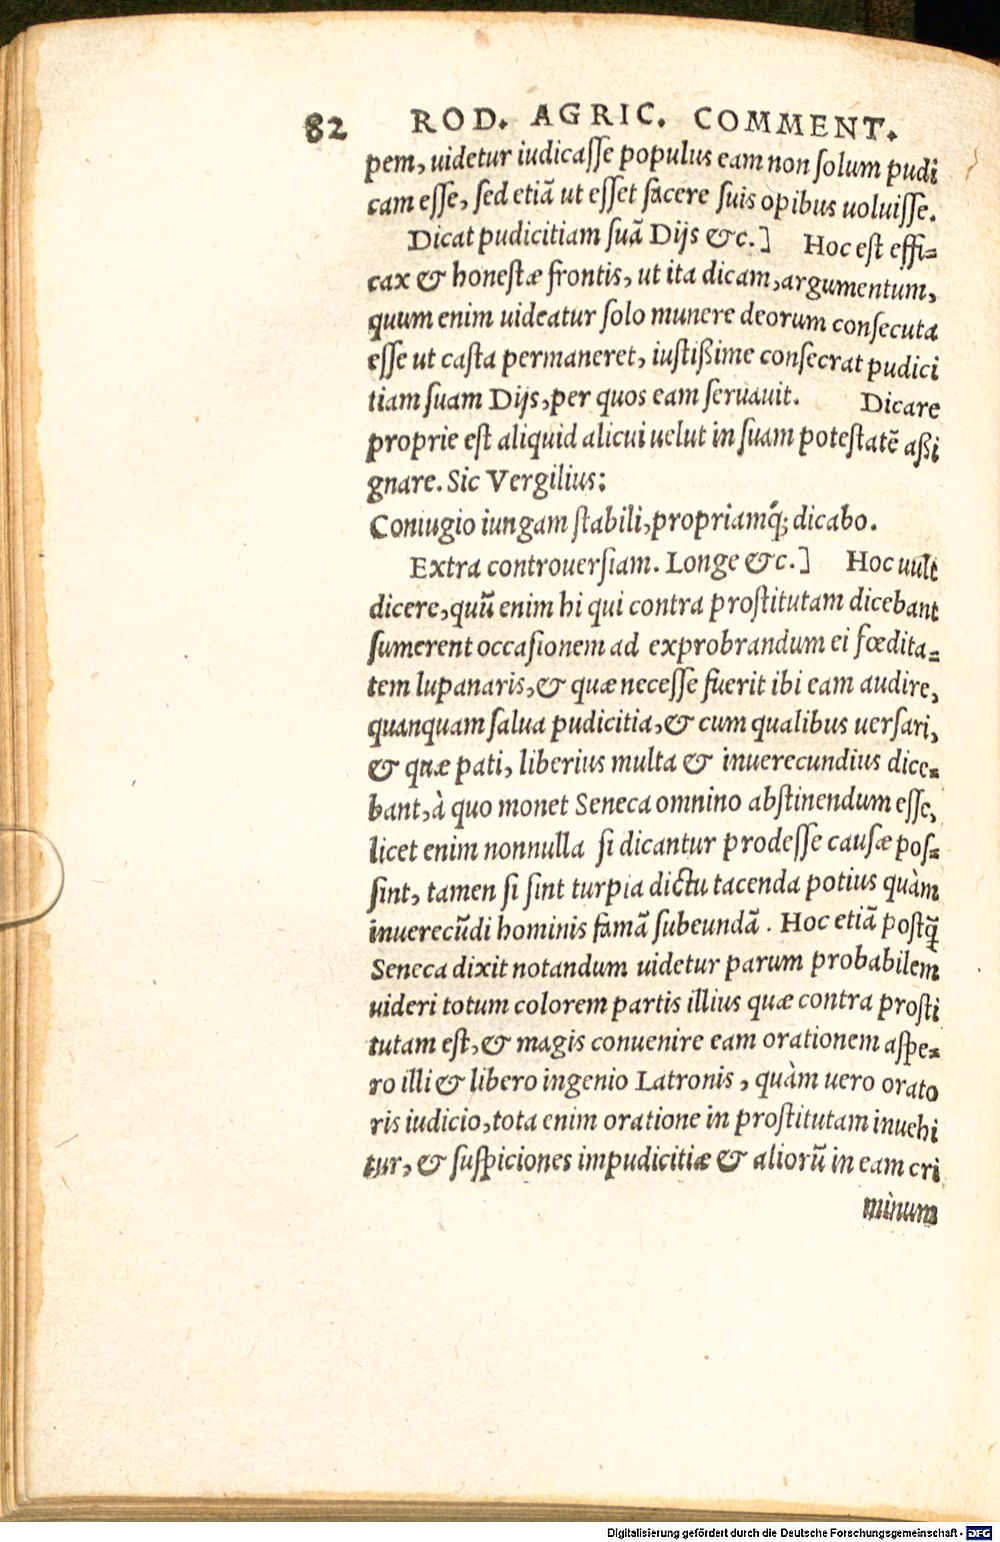 82 ROD. AGRIC. COMMENT.
pem, uidetur iudicaſſe populus eam non ſolum pudi
cam eſſe, ſed etiã ut eſſet facere ſuis opibus uoluiſſe.
Dicat pudicitiam ſuã Dijs &c.] Hoc eſt effi=
cax & honeſtæ frontis, ut ita dicam, argumentum,
quum enim uideatur ſolo munere deorum conſecuta
eſſe ut caſta permaneret, iuſtißime conſecrat pudici
tiam ſuam Dijs, per quos eam ſeruauit. Dicare
proprie eſt aliquid alicui uelut in ſuam poteſtatẽ aßi
gnare. Sic Vergilius:
Coniugio iungam ſtabili, propriamq́; dicabo.
Extra controuerſiam. Longe &c.] Hoc uult
dicere, quũ enim hi qui contra proſtitutam dicebant
ſumerent occaſionem ad exprobrandum ei fœdita=
tem lupanaris, & quæ neceſſe fuerit ibi eam audire,
quanquam ſalua pudicitia, & cum qualibus uerſari,
& quæ pati, liberius multa & inuerecundius dice=
bant, à quo monet Seneca omnino abſtinendum eſſe,
licet enim nonnulla ſi dicantur prodeſſe cauſæ poſ=
ſint, tamen ſi ſint turpia dictu tacenda potius quàm
inuerecũdi hominis famã ſubeundã. Hoc etiã poſtq̃
Seneca dixit notandum uidetur parum probabilem
uideri totum colorem partis illius quæ contra proſti
tutam eſt, & magis conuenire eam orationem aſpe=
ro illi & libero ingenio Latronis, quàm uero orato
ris iudicio, tota enim oratione in proſtitutam inuehi
tur, & ſuſpiciones impudicitiæ & aliorũ in eam cri
minum
Digitalisierung gefördert durch die Deutsche Forschungsgemeinschaft - DFG